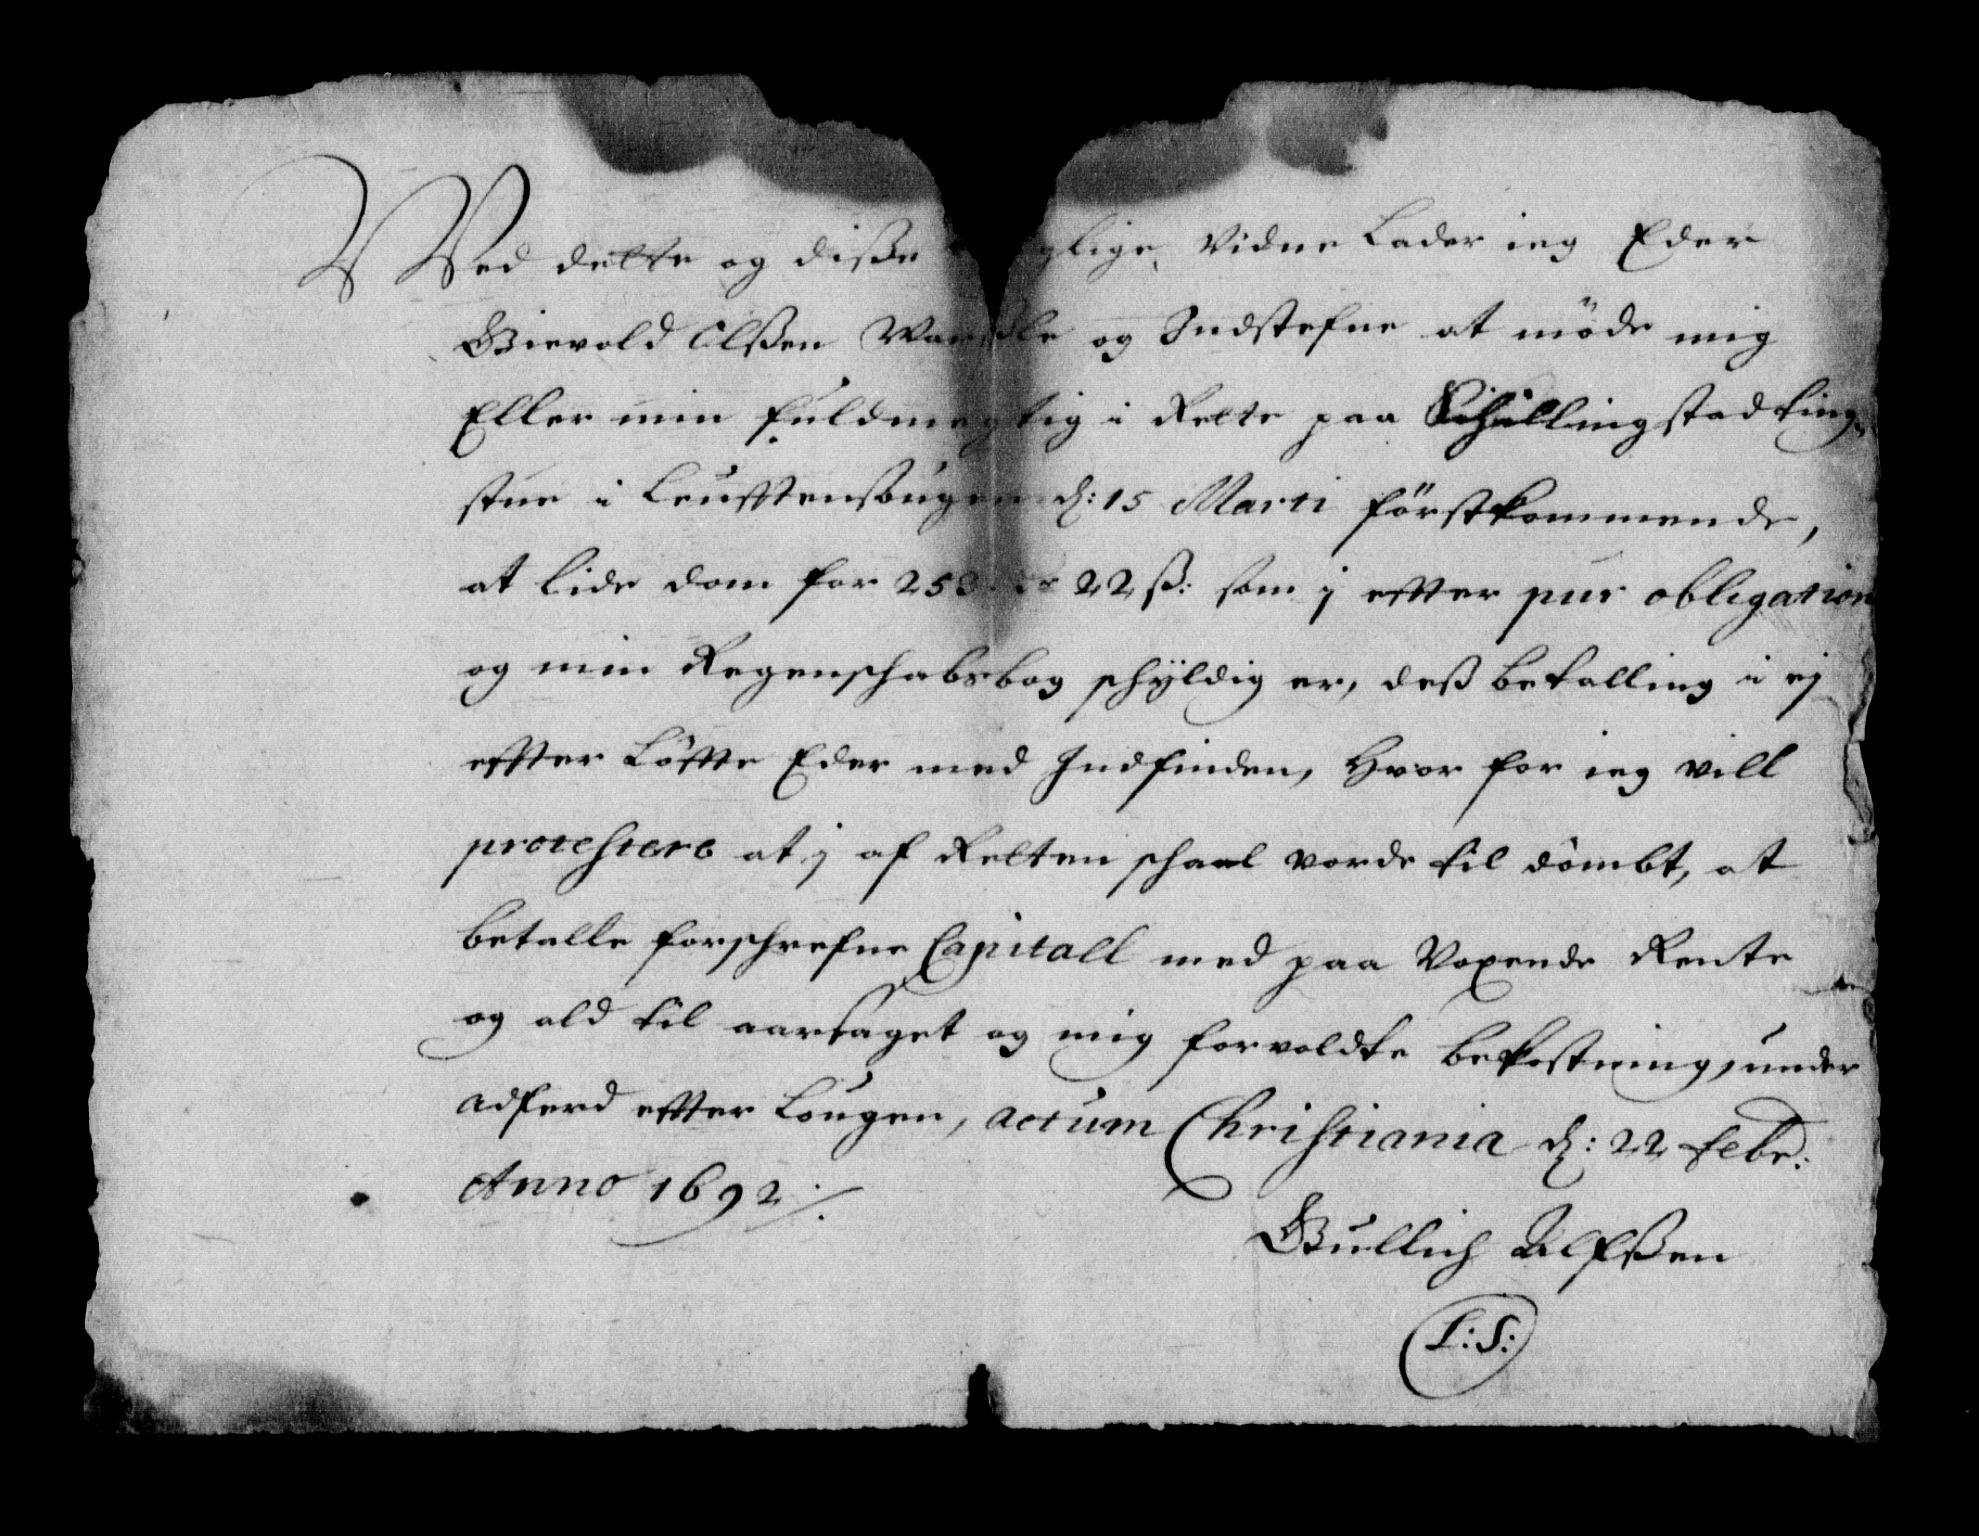 Wed dette og disse lige Vidne Lader ieg Eder
Gievold Olßen og Indstefne at möde mig
Eller min fuldmegtig i Rette paa Schillingstad ting-
stue i d: 15 Marti förstkommende,
at lide dom for 22 ß: som j effter pur obligation
og min Regenschabsbog schÿldig er, deß betalling i ej
effter Löffte Eder med Indfinden, Hvor for ieg vill
protestere at j af Retten schael vorde til dömbt, at
betalle forschrefne Capitall med paa Voxende Rente
og ald til aarsaget og mig forvoldte bekostning, under
adferd effter Lougen, actum Christiania d: 22 febr:
Anno 1692 ·/·
Gullich Alfßen
L:S: